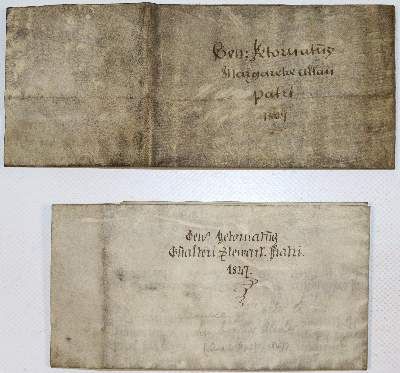 Gen: Retornatus
Margarete Allan
patri
1807
Genˢ Retornatus
Gualteri Stewart Patri.
1847.